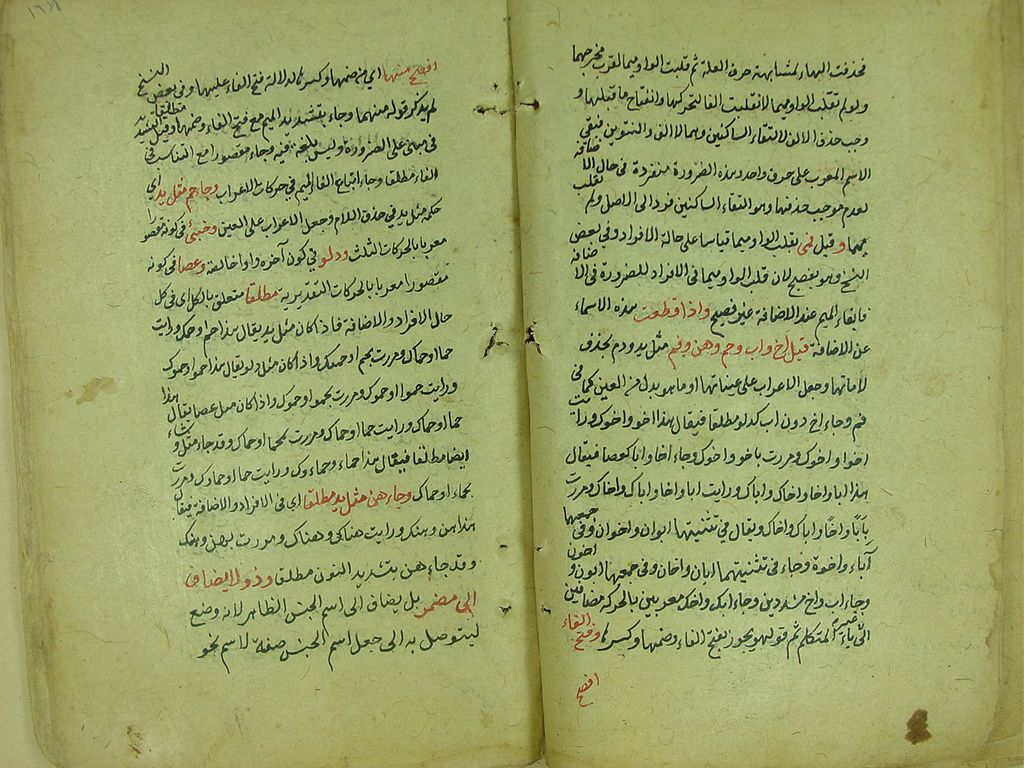 فحذفت الهاء لمشابهة حرف العلة ثم قلبت الواو ميما لقرب مخرجهما
ولو لم تقلب الواو ميما لانقلبت الفا لتحركها وانفتاح ما قبلها و
وجب حذف الالف لالتقاء الساكنين وهما الالف والتنوين فبقي
الاسم المعرب على حرف واحد وهذه الضرورة منفردة في حال الاضافة
لعدم موجب حذفها وهو التقاء الساكنين فرد الى الاصل ولم تقلب
ميما وقيل فمى بقلب الواو ميما قياسا على حالة الافراد وفي بعض
النسخ وهو بفصيح لان قلب الواو ميما في الافراد للضرورة في الاضافة
فابقاء الميم عند الاضافة غير فصيح واذا قطعت هذه الاسماء
عن الاضافة قيل اخ واب وحم وهن وفم مثل يد ودم بحذف
لاماتها وجعل الاعراب على عيناتها او ما هو بدل من العين كما في
فم وجاء اخ دون اب كدلو مطلقا فيقال هذا اخو واخوك ورايت
اخوا واخوك ومررت باخو واخوك وجاء اخا وابا كعصا فيقال
هذا ابا واخا واخاك واباك ورايت ابا واخا واباك واخاك ومررت
بأبا واخا واباك واخاك ويقال في تثنيتهما ابوان واخوان وفي جمعهما
آباء واخوة وجاء في تثنيتهما ابان واخان وفي جمعهما ابون و اخون
وجاء اب واخ مشددين وجاء ابك واخك معربين بالحركة مضافين
الى ياء ضمير المتكلم ثم قولهو يجوز بفتح الفاء وضمها وكسرها وفتح الفاء
افصح
افصح منهما اي من ضمها وكسرها لدلالة فتح الفاء عليها وفي بعض النسخ
لم يذكر قوله منهما وجاء بتشديد الميم مع فتح الفاء وضمها وقيل التشديد
في مبنى على الضرورة وليس بلغة فيه وجاء مقصورا مع التثليث في
الفاء مطلقا وجاء اتباع الفاء الميم في حركات الاعراب وجاء حم مثل يد اي
حكمه مثل يد في حذف اللام وجعل الاعراب على العين وخبئ في كونه مقصورا
معربا بالحركات الثلث ودلو في كون آخره واوا خالصة وعصا في كونه
مقصورا معربا بالحركات التقديرية مطلقا متعلق بالكل اي في كل
حال الافراد والاضافة فاذا كان مثل يد يقال هذا حم او حمك ورايت
حما او حماك ومررت بحم او حمك واذا كان مثل دلو يقال هذا حمو او حموك
ورايت حموا او حموك ومررت بحمو او حموك واذا كان مثل عصا يقال هذا
حما او حماك ورايت حما او حماك ومررت بحما او حماك وقد جاء مثل رشاء
ايضا مطلقا فيقال هذا حماء وحماءوك ورايت حما او حماوك ومررت
بحماء او حماك وجاء هن مثل يد مطلقا اي في الافراد والاضافة فيقال
هذا هن وهنك ورايت هناكى وهناك ومررت بهن وهنك
وقد جاء هن بتشديد النون مطلقا وذو لا يضاف
الى مضمر بل يضاف الى اسم الجنس الظاهر لانه وضع
ليتوصل به الى جعل اسم الجنس صفة لاسم نحو